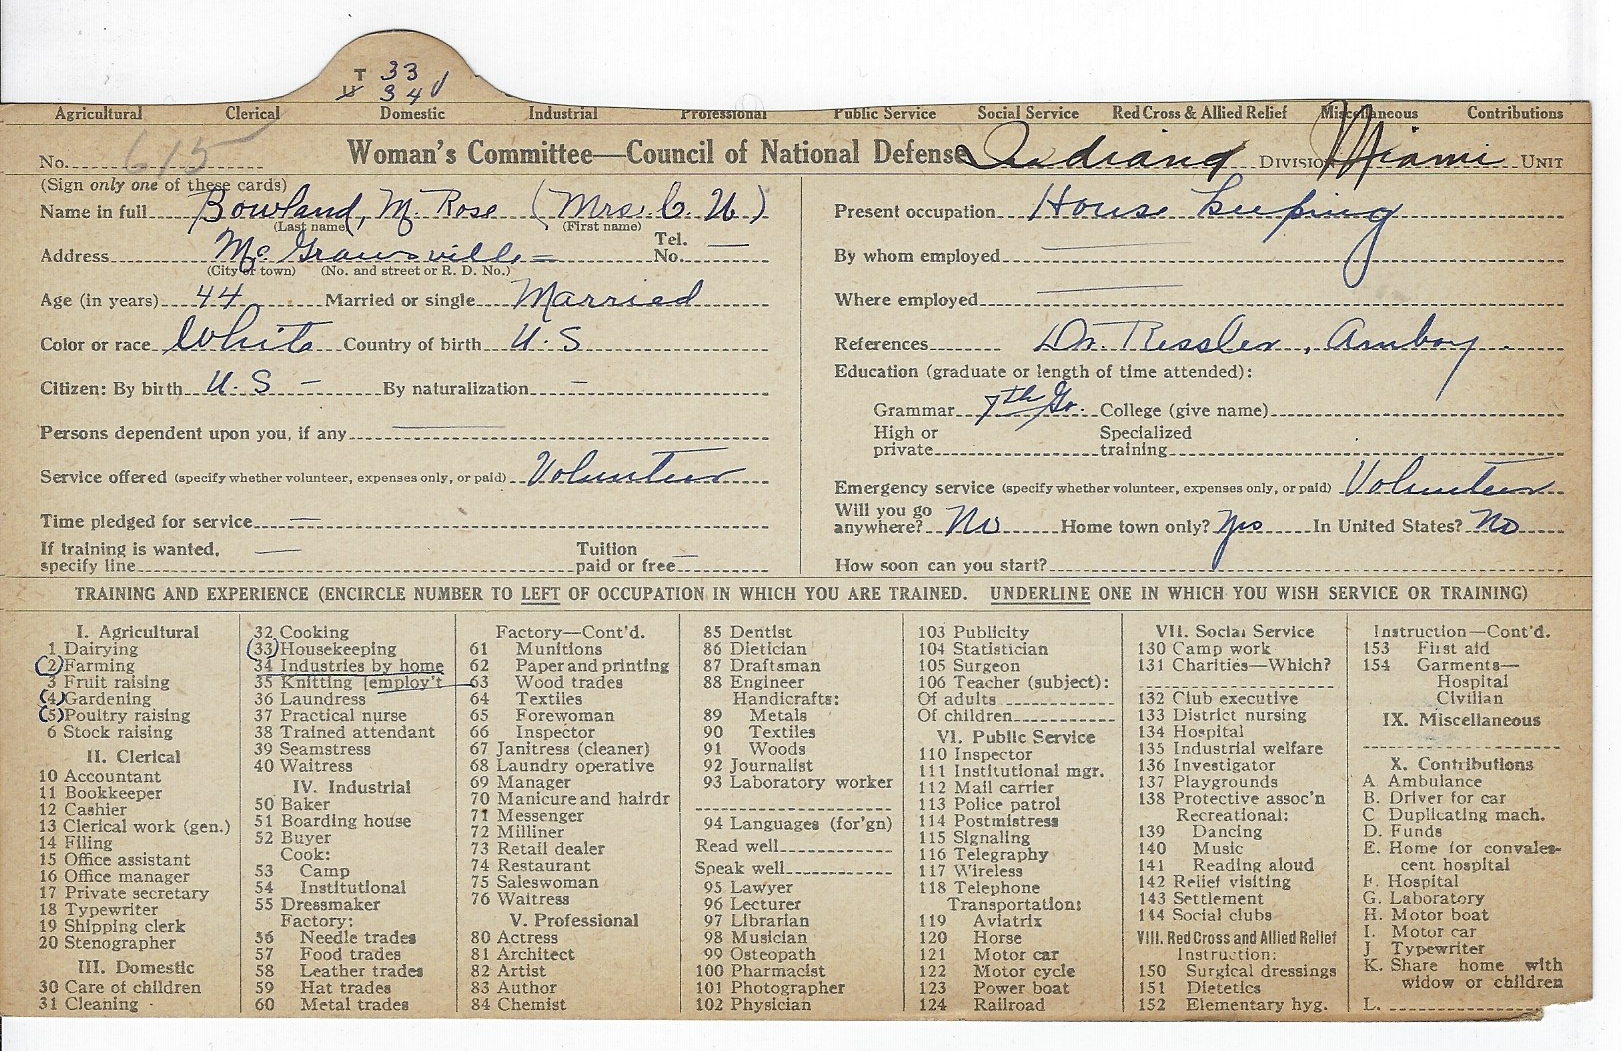 T 33
U 34
Agricultural Clerical Domestic Industrial Professional Public Service Social Service Red Cross & Allied Relief Miscellaneous Contributions
No. 615 Woman's Committee—Council of National Defense Indiana DIVISION Miami UNIT
(Sign only one of these cards)
Name in full Bowland, M. Rose (Mrs. C. U)
(Last name) (First name)
Address McGrawsville Tel. No. —
(City or town) (No. and street or R. D. No.)
Age (in years) 44 Married or single Married
Color or race White Country of birth U.S
Citizen: By birth U.S — By naturalization —
Persons dependent upon you, if any —
Service offered (specify whether volunteer, expenses only, or paid) Volunteer
Time pledged for service —
If training is wanted, specify line — Tuition paid or free —
Present occupation House keeping
By whom employed —
Where employed —
References Dr. Ressler, Amboy.
Education (graduate or length of time attended):
Grammar 7th Gr. College (give name)
High or private Specialized training
Emergency service (specify whether volunteer, expenses only, or paid) Volunteer
Will you go anywhere? No Home town only? Yes In United States? No
How soon can you start?
TRAINING AND EXPERIENCE (ENCIRCLE NUMBER TO LEFT OF OCCUPATION IN WHICH YOU ARE TRAINED. UNDERLINE ONE IN WHICH YOU WISH SERVICE OR TRAINING)
I. Agricultural
1 Dairying
2 Farming
3 Fruit raising
4 Gardening
5 Poultry raising
6 Stock raising
II. Clerical
10 Accountant
11 Bookkeeper
12 Cashier
13 Clerical work (gen.)
14 Filing
15 Office assistant
16 Office manager
17 Private secretary
18 Typewriter
19 Shipping clerk
20 Stenographer
III. Domestic
30 Care of children
31 Cleaning
32 Cooking
33 Housekeeping
34 Industries by home
35 Knitting [employ't
36 Laundress
37 Practical nurse
38 Trained attendant
39 Seamstress
40 Waitress
IV. Industrial
50 Baker
51 Boarding house
52 Buyer
Cook:
53 Camp
54 Institutional
55 Dressmaker
Factory:
56 Needle trades
57 Food trades
58 Leather trades
59 Hat trades
60 Metal trades
Factory—Cont'd.
61 Munitions
62 Paper and printing
63 Wood trades
64 Textiles
65 Forewoman
66 Inspector
67 Janitress (cleaner)
68 Laundry operative
69 Manager
70 Manicure and hairdr
71 Messenger
72 Milliner
73 Retail dealer
74 Restaurant
75 Saleswoman
76 Waitress
V. Professional
80 Actress
81 Architect
82 Artist
83 Author
84 Chemist
85 Dentist
86 Dietician
87 Draftsman
88 Engineer
Handicrafts:
89 Metals
90 Textiles
91 Woods
92 Journalist
93 Laboratory worker
94 Languages (for'gn)
Read well
Speak well
95 Lawyer
96 Lecturer
97 Librarian
98 Musician
99 Osteopath
100 Pharmacist
101 Photographer
102 Physician
103 Publicity
104 Statistician
105 Surgeon
106 Teacher (subject):
Of adults
Of children
VI. Public Service
110 Inspector
111 Institutional mgr.
112 Mail carrier
113 Police patrol
114 Postmistress
115 Signaling
116 Telegraphy
117 Wireless
118 Telephone
Transportation:
119 Aviatrix
120 Horse
121 Motor car
122 Motor cycle
123 Power boat
124 Railroad
VII. Social Service
130 Camp work
131 Charities—Which?
132 Club executive
133 District nursing
134 Hospital
135 Industrial welfare
136 Investigator
137 Playgrounds
138 Protective assoc'n
Recreational:
139 Dancing
140 Music
141 Reading aloud
142 Relief visiting
143 Settlement
144 Social clubs
VIII. Red Cross and Allied Relief
Instruction:
150 Surgical dressings
151 Dietetics
152 Elementary hyg.
Instruction—Cont'd.
153 First aid
154 Garments—
Hospital
Civilian
IX. Miscellaneous
X. Contributions
A. Ambulance
B. Driver for car
C Duplicating mach.
D. Funds
E. Home for convales-
cent hospital
F. Hospital
G. Laboratory
H. Motor boat
I. Motor car
J Typewriter
K. Share home with
widow or children
L.